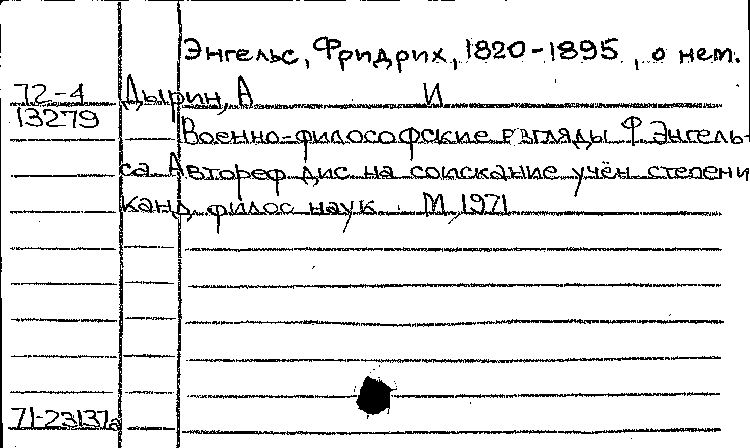 Энгельс, Фридрих, 1820-1895, о нем.
72-4 Дырин, А И
13279
Военно-философские взгляды Ф. Энгель-
са Автореф дис на соискание учён степени
канд филос наук. М, 1971
71-23137а